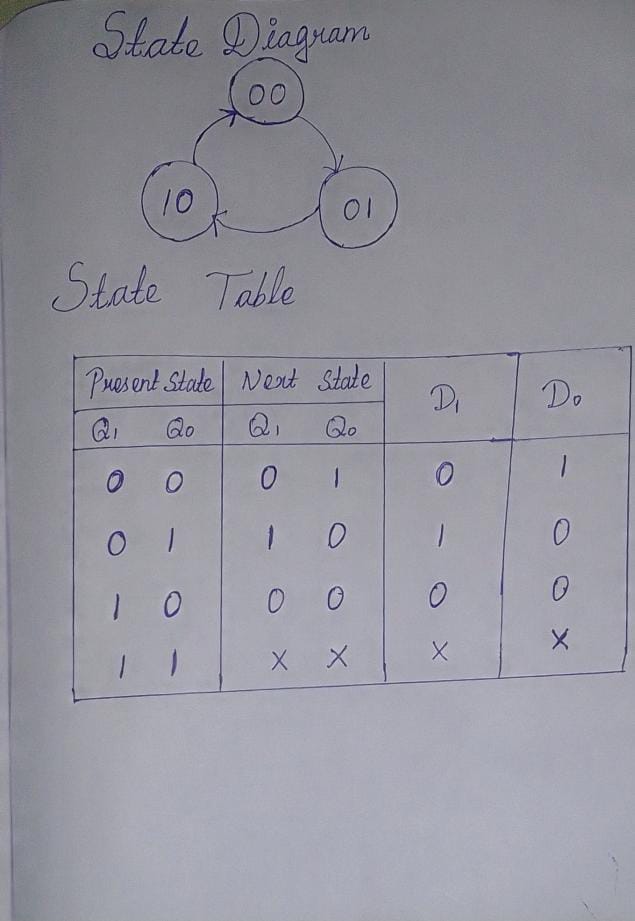 State Diagram
00
10
01
State Table
Present State Next State D1 D0
Q1 Q0 Q1 Q0
0 0 0 1 0 1
0 1 1 0 1 0
1 0 0 0 0 0
1 1 X X X X